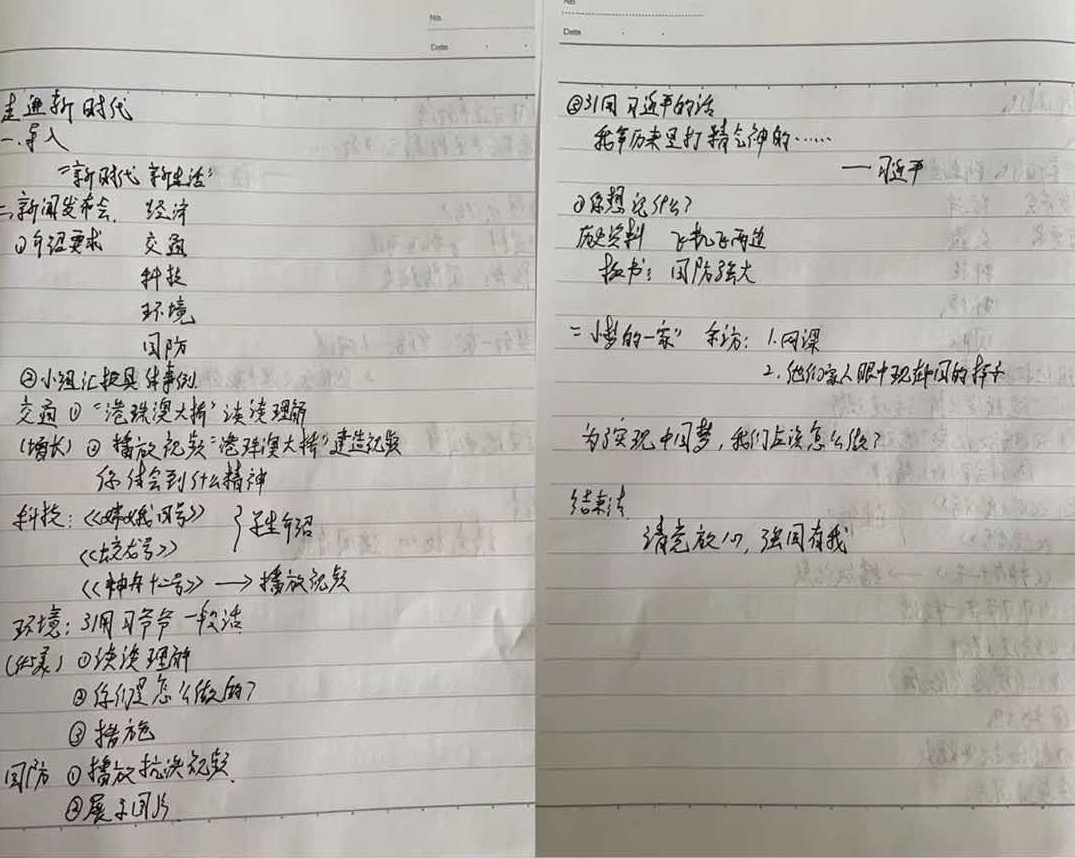 No.
Date
走进新时代
一.导入
"新时代 新生活"
二.新闻发布会. 经济
①介绍要求 交通
科技
环境
国防
②小组汇报具体事例.
交通 ① "港珠澳大桥" 谈谈理解
(增长) ② 播放视频"港珠澳大桥"建造视频
你体会到什么精神
科技: 《嫦娥四号》 } 学生介绍
《蛟龙号》
《神舟十二号》 → 播放视频
环境: 引用习爷爷一段话
①谈谈理解
②你们是怎么做的?
③措施
国防 ①播放抗洪视频.
②展示图片.
No.
Date
③引用习近平的话
我军历来是打精气神的……
——习近平
④你想说什么?
历史资料 飞机飞两遍
板书: 国防强大
三 "小梦的一家" 采访: 1.网课
2.他们家人眼中现在中国的样子
为了实现中国梦, 我们应该怎么做?
结束语
请党放心, 强国有我